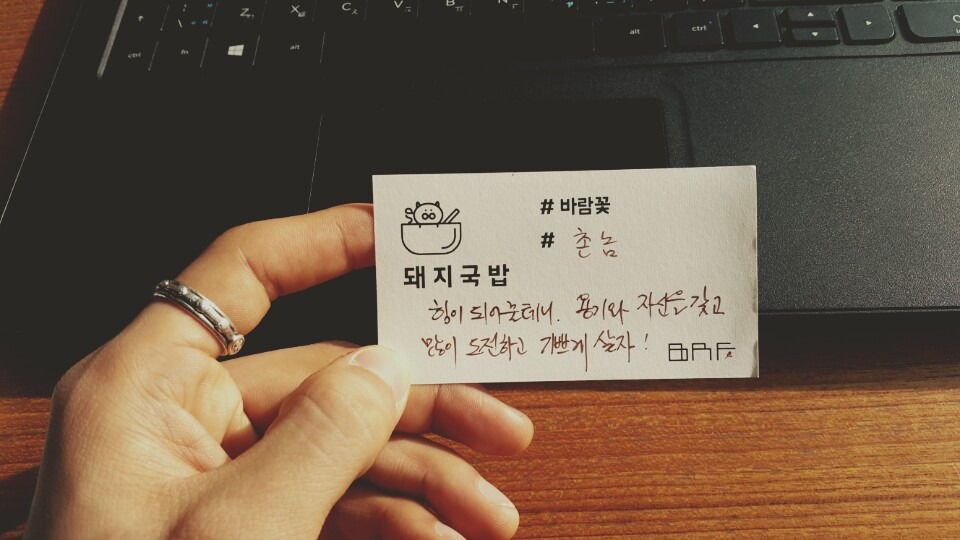 ctrl
fn
alt
alt
ctrl
Z
X
C
V
B
N
# 바람꽃
# 촌놈
돼지국밥
힘이 되어줄테니. 용기와 자신을 갖고
많이 도전하고 기쁘게 살자!